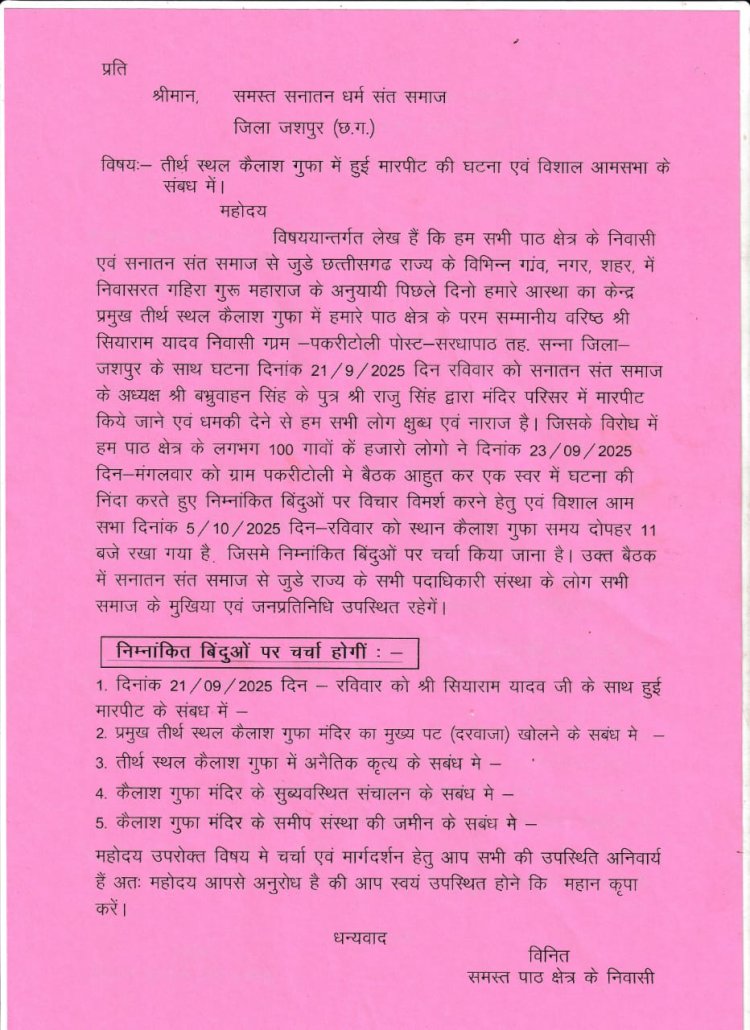 प्रति
श्रीमान, समस्त सनातन धर्म संत समाज
जिला जशपुर (छ.ग.)
विषयः– तीर्थ स्थल कैलाश गुफा में हुई मारपीट की घटना एवं विशाल आमसभा के
संबध में।
महोदय
विषययान्तर्गत लेख हैं कि हम सभी पाठ क्षेत्र के निवासी
एवं सनातन संत समाज से जुडे छत्तीसगढ राज्य के विभिन्न गांव, नगर, शहर, में
निवासरत गहिरा गुरू महाराज के अनुयायी पिछले दिनो हमारे आस्था का केन्द्र
प्रमुख तीर्थ स्थल कैलाश गुफा में हमारे पाठ क्षेत्र के परम सम्मानीय वरिष्ठ श्री
सियाराम यादव निवासी ग्राम –पकरीटोली पोस्ट–सरधापाठ तह. सन्ना जिला–
जशपुर के साथ घटना दिनांक 21/9/2025 दिन रविवार को सनातन संत समाज
के अध्यक्ष श्री बभ्रुवाहन सिंह के पुत्र श्री राजु सिंह द्वारा मंदिर परिसर में मारपीट
किये जाने एवं धमकी देने से हम सभी लोग क्षुब्ध एवं नाराज है। जिसके विरोध में
हम पाठ क्षेत्र के लगभग 100 गावों कें हजारो लोगो ने दिनांक 23/09/2025
दिन–मंगलवार को ग्राम पकरीटोली मे बैठक आहुत कर एक स्वर में घटना की
निंदा करते हुए निम्नांकित बिंदुओं पर विचार विमर्श करने हेतु एवं विशाल आम
सभा दिनांक 5/10/2025 दिन–रविवार को स्थान कैलाश गुफा समय दोपहर 11
बजे रखा गया है. जिसमे निम्नांकित बिंदुओं पर चर्चा किया जाना है। उक्त बैठक
में सनातन संत समाज से जुडे राज्य के सभी पदाधिकारी संस्था के लोग सभी
समाज के मुखिया एवं जनप्रतिनिधि उपस्थित रहेगें।
निम्नांकित बिंदुओं पर चर्चा होगीं : –
1. दिनांक 21/09/2025 दिन – रविवार को श्री सियाराम यादव जी के साथ हुई
मारपीट के संबध में –
2. प्रमुख तीर्थ स्थल कैलाश गुफा मंदिर का मुख्य पट (दरवाजा) खोलने के सबंध मे –
3. तीर्थ स्थल कैलाश गुफा में अनैतिक कृत्य के सबंध मे –
4. कैलाश गुफा मंदिर के सुब्यवस्थित संचालन के सबंध मे –
5. कैलाश गुफा मंदिर के समीप संस्था की जमीन के सबंध मे –
महोदय उपरोक्त विषय मे चर्चा एवं मार्गदर्शन हेतु आप सभी की उपस्थिति अनिवार्य
हैं अतः महोदय आपसे अनुरोध है की आप स्वयं उपस्थित होने कि महान कृपा
करें।
धन्यवाद
विनित
समस्त पाठ क्षेत्र के निवासी